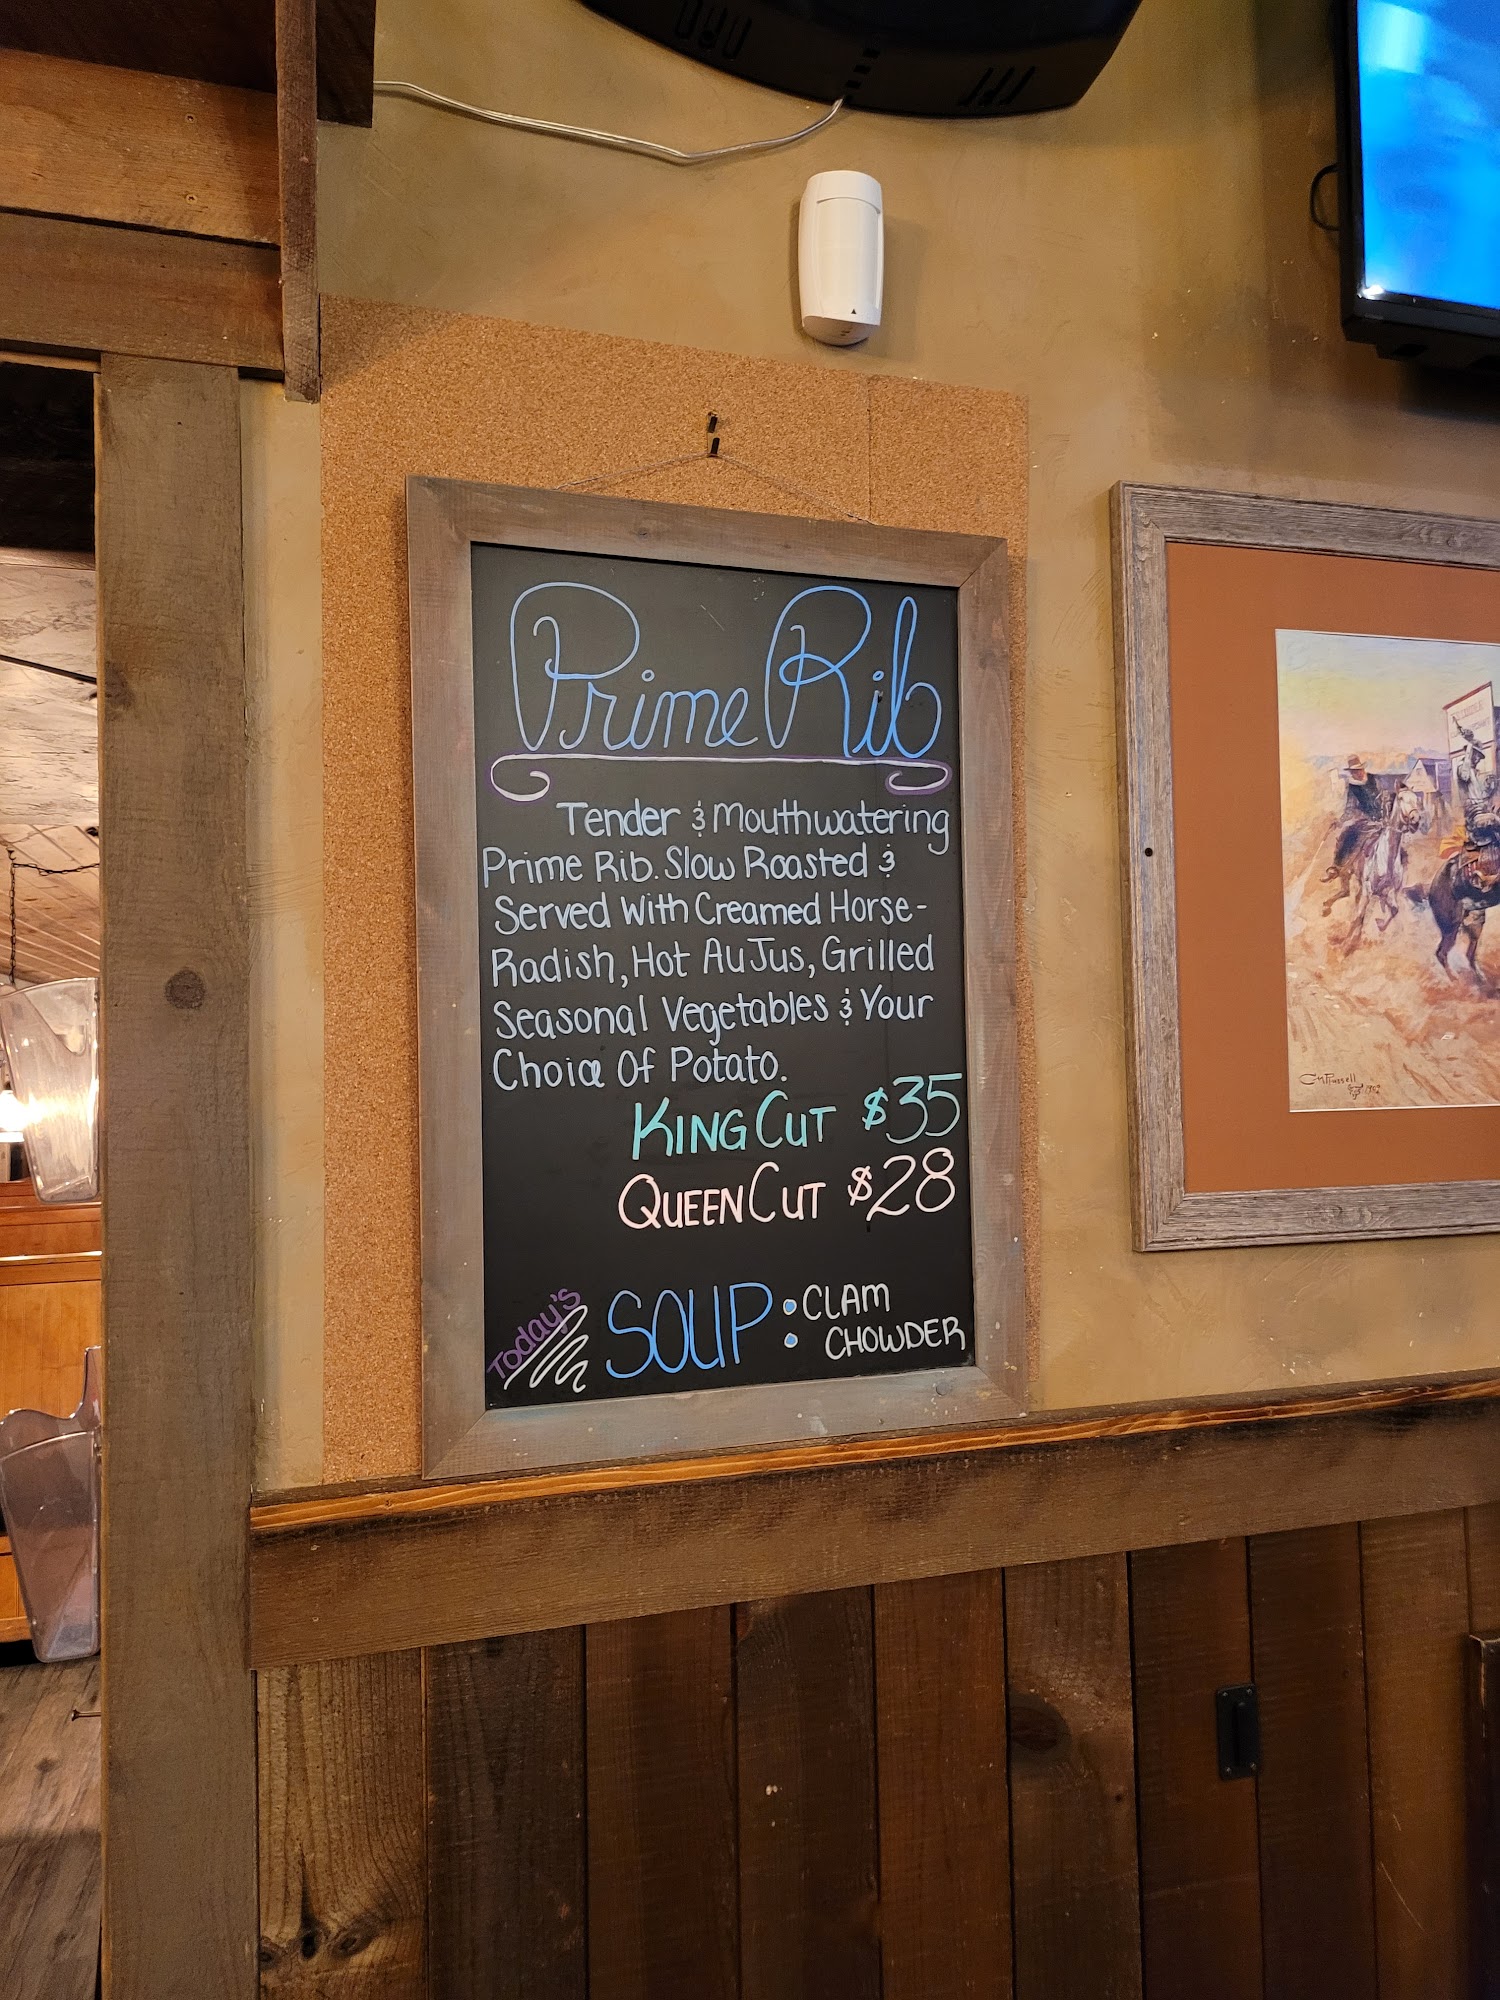 Prime Rib
Tender & Mouthwatering
Prime Rib. Slow Roasted &
Served With Creamed Horse-
Radish, Hot Au Jus, Grilled
Seasonal Vegetables & Your
Choice Of Potato.
KING CUT $35
QUEEN CUT $28
Today's SOUP: CLAM
CHOWDER